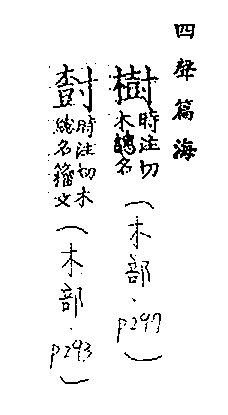 四聲篇海
樹時注切木總名(木部.p297)
時注切木總名籀文(木部.p293)